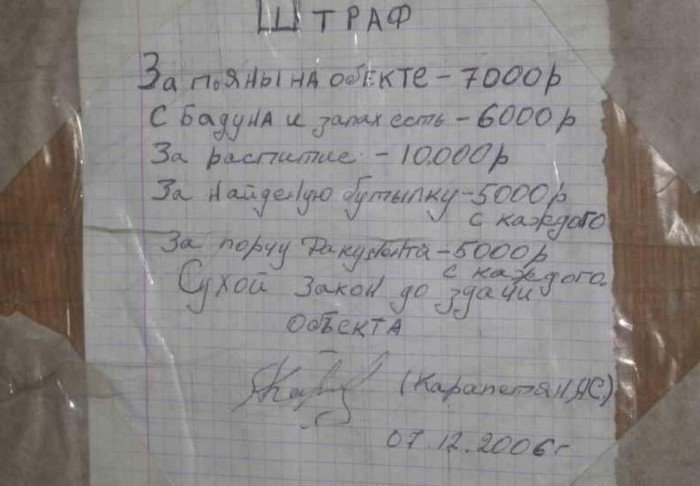 ШТРАФ
За пьяны на обекте - 7000р
С бадуна и запах есть - 6000р
За распитие - 10.000р
За найденую бутылку - 5000р
с каждого
За порчу - 5000р
с каждого.
Сухой закон до здачи
объекта
(Карапетян ЯС)
07.12.2006г